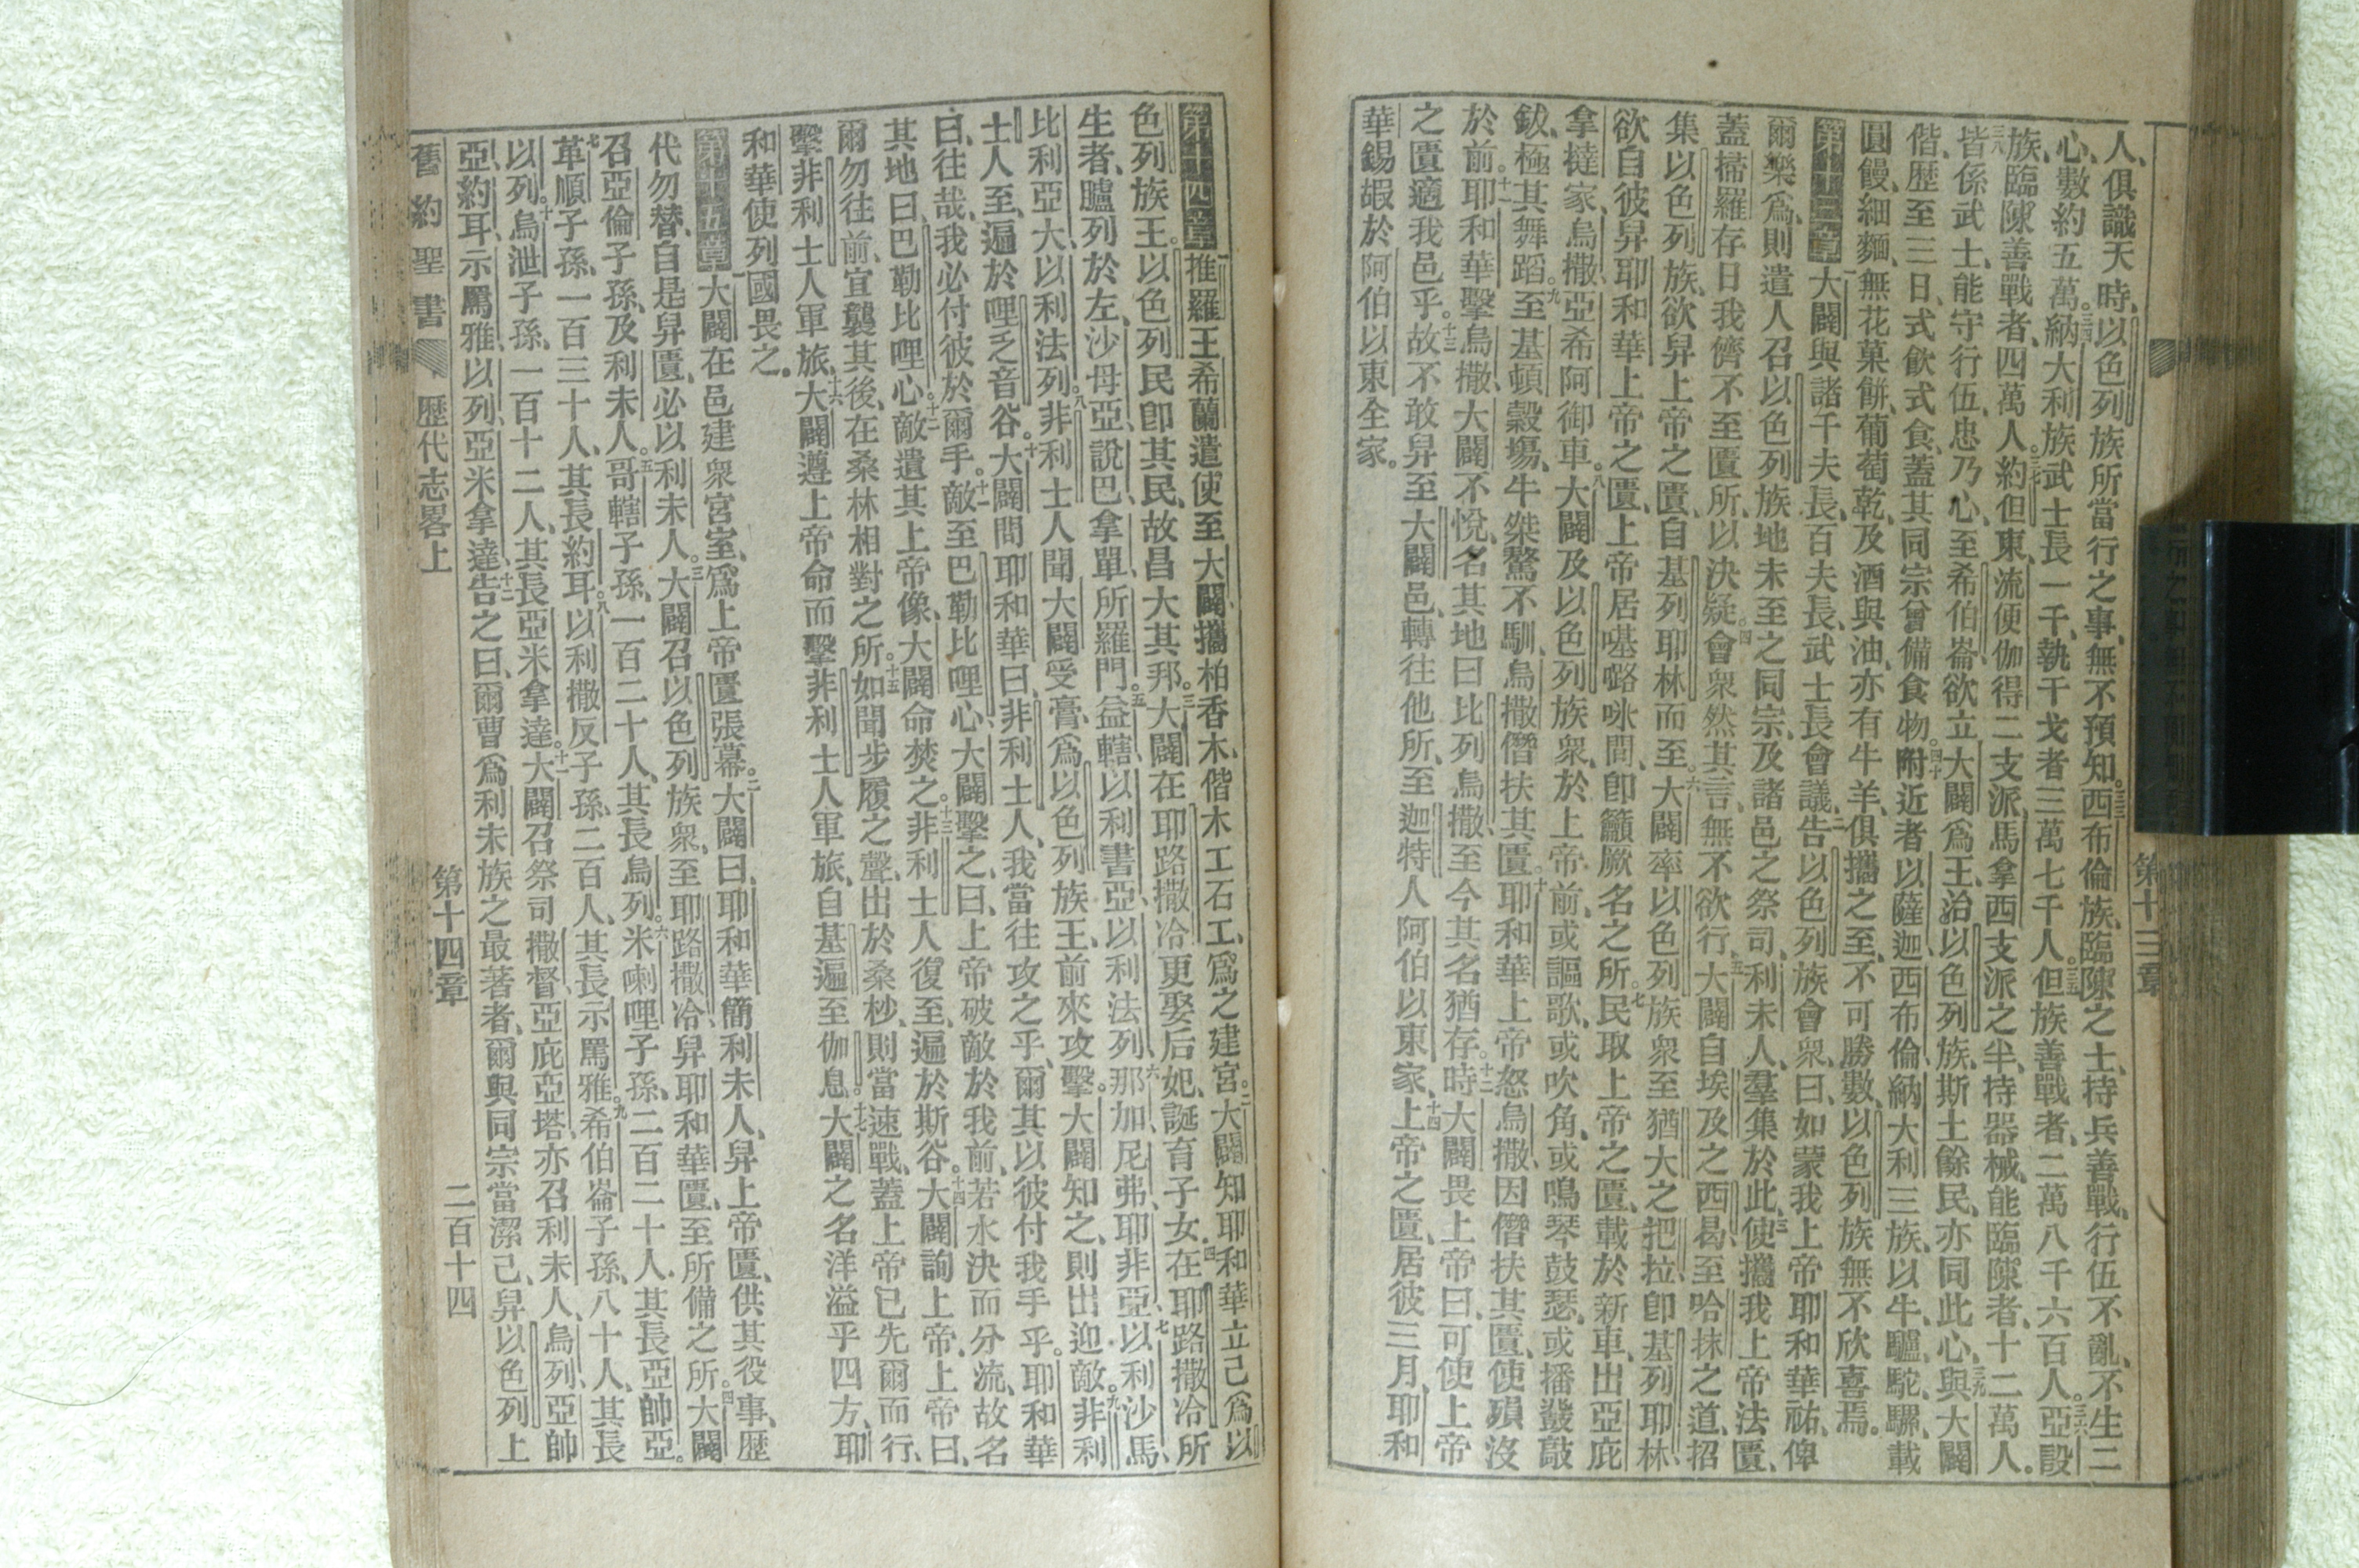 人、俱識天時、以色列族所當行之事、無不預知。三三西布倫族、臨陳之士、持兵善戰、行伍不亂、不生二
心、數約五萬。三四納大利族武士長一千、執干戈者三萬七千人。三五但族善戰者、二萬八千六百人。三六亞設
族、臨陳善戰者、四萬人。三七約但東、流便伽得二支派、馬拿西支派之半、持器械、能臨陳者、十二萬人。
三八皆係武士、能守行伍、忠乃心、至希伯崙、欲立大闢爲王、治以色列族、斯土餘民、亦同此心、三九與大闢
偕、歷至三日、式飲式食、蓋其同宗曾備食物。四十附近者、以薩迦、西布倫、納大利三族、以牛、驢、駝、騾、載
圓饅、細麵、無花菓餅、葡萄乾、及酒與油、亦有牛羊、俱攜之至、不可勝數、以色列族無不欣喜焉。
第十三章一大闢與諸千夫長、百夫長、武士長會議、二告以色列族會衆曰、如蒙我上帝耶和華祐、俾
爾樂爲、則遣人召以色列族地未至之同宗、及諸邑之祭司、利未人、羣集於此、三使攜我上帝法匱、
蓋掃羅存日、我儕不至匱所、以決疑。四會衆然其言、無不欲行、五大闢自埃及之西曷、至哈抹之道、招
集以色列族、欲舁上帝之匱、自基列耶林而至。六大闢率以色列族衆至猶大之把拉、卽基列耶林、
欲自彼舁耶和華上帝之匱、上帝居𠼻㘔咏間、卽籲厥名之所。七民取上帝之匱、載於新車、出亞庇
拿撻家、烏撒、亞希阿御車。八大闢及以色列族衆、於上帝前、或謳歌、或吹角、或鳴琴鼓瑟、或播鼗敲
鈸、極其舞蹈。九至基頓穀場、牛桀驁不馴、烏撒僭扶其匱。十耶和華上帝怒烏撒、因僭扶其匱、使殞沒
於前。十一耶和華擊烏撒、大闢不悅、名其地曰比列烏撒、至今其名猶存。十二時大闢畏上帝曰、可使上帝
之匱適我邑乎。十三故不敢舁至大闢邑、轉往他所、至迦特人阿伯以東家、十四上帝之匱、居彼三月、耶和
華錫嘏於阿伯以東全家。
第十四章一推羅王希蘭遣使至大闢、攜柏香木、偕木工石工、爲之建宮。二大闢知耶和華立己爲以
色列族王。以色列民卽其民、故昌大其邦。三大闢在耶路撒冷更娶后妃、誕育子女、四在耶路撒冷所
生者、臚列於左、沙母亞、說巴、拿單、所羅門。五益轄、以利書亞、以利法列、六那加、尼弗、耶非亞、七以利沙馬、
比利亞大、以利法列。八非利士人聞大闢受膏、爲以色列族王、前來攻擊。大闢知之、則出迎敵。九非利
士人至、遍於哩乏音谷。十大闢問耶和華曰、非利士人、我當往攻之乎、爾其以彼付我手乎。耶和華
曰、往哉、我必付彼於爾手。十一敵至巴勒比哩心、大闢擊之、曰、上帝破敵於我前、若水決而分流、故名
其地曰巴勒比哩心。十二敵遺其上帝像、大闢命焚之。十三非利士人復至、遍於斯谷。十四大闢詢上帝、上帝曰、
爾勿往前、宜襲其後、在桑林相對之所。十五如聞步履之聲、出於桑杪、則當速戰、蓋上帝已先爾而行、
擊非利士人軍旅。十六大闢遵上帝命而擊非利士人軍旅、自基遍至伽息。十七大闢之名洋溢乎四方、耶
和華使列國畏之。
第十五章一大闢在邑建衆宮室、爲上帝匱張幕。二大闢曰、耶和華簡利未人、舁上帝匱、供其役事、歷
代勿替、自是舁匱、必以利未人。三大闢召以色列族衆、至耶路撒冷、舁耶和華匱、至所備之所。四大闢
召亞倫子孫、及利未人。五哥轄子孫、一百二十人、其長烏列。六米喇哩子孫、二百二十人、其長亞帥亞。
七革順子孫、一百三十人、其長約耳。八以利撒反子孫、二百人、其長示罵雅。九希伯崙子孫、八十人、其長
以列。十烏泄子孫、一百十二人、其長亞米拿達。十一大闢召祭司撒督、亞庇亞塔、亦召利未人、烏列、亞帥
亞、約耳、示罵雅、以列、亞米拿達、十二告之曰、爾曹爲利未族之最著者、爾與同宗當潔己、舁以色列上
舊約聖書 歷代志畧上 第十四章 二百十四
第十三章